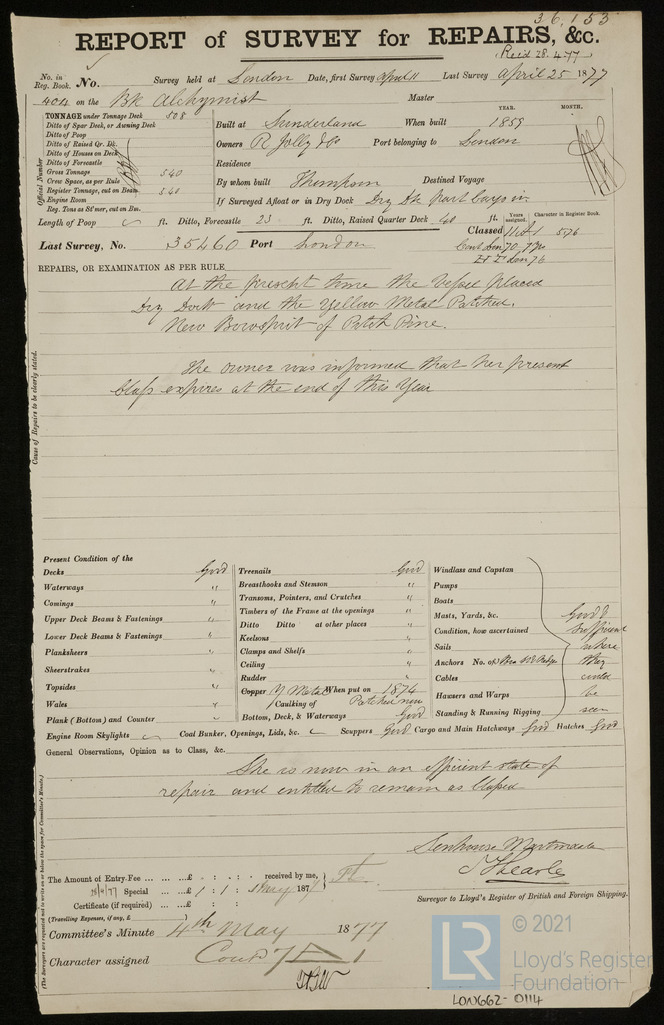 36,153
REPORT of SURVEY for REPAIRS, &c.
Rec'd 28.4.77
No. in Reg. Book. No. Survey held at London Date, first Survey April 11 Last Survey April 25 1877
404 on the Bk Alchymist Master
TONNAGE under Tonnage Deck 508
Ditto of Spar Deck, or Awning Deck
Ditto of Poop
Ditto of Raised Qr. Dk.
Ditto of Houses on Deck
Ditto of Forecastle
Gross Tonnage 540
Crew Space, as per Rule
Register Tonnage, cut on Beam 540
Engine Room
Reg. Tons as St'mer, cut on Bm.
Official Number
YEAR. MONTH.
Built at Sunderland When built 1859
Owners R Jolly & Co Port belonging to London
Residence
By whom built Thompson Destined Voyage
If Surveyed Afloat or in Dry Dock Dry Dk part
Length of Poop ft. Ditto, Forecastle 23 ft. Ditto, Raised Quarter Deck 40 ft.
Years assigned. Character in Register Book.
Classed 11 A1 5,76
Cont Lon 70 7 yrs
Lon 76
Last Survey, No. 35460 Port London
REPAIRS, OR EXAMINATION AS PER RULE
At the present time the Vessel placed
Dry Dock and the Yellow Metal Patched.
New Bowsprit of Pitch Pine.
The owner was informed that her present
Class expires at the end of this Year
Cause of Repairs to be clearly stated.
Present Condition of the
Decks Good
Waterways "
Comings "
Upper Deck Beams & Fastenings "
Lower Deck Beams & Fastenings "
Planksheers "
Sheerstrakes "
Topsides "
Wales "
Plank (Bottom) and Counter "
Treenails Good
Breasthooks and Stemson "
Transoms, Pointers, and Crutches "
Timbers of the Frame at the openings "
Ditto Ditto at other places "
Keelsons "
Clamps and Shelfs "
Ceiling "
Rudder "
Copper Y Metal When put on 1874
Caulking of Patched new
Bottom, Deck, & Waterways Good
Windlass and Capstan
Pumps
Boats
Masts, Yards, &c.
Condition, how ascertained
Sails
Anchors No. of
Cables
Hawsers and Warps
Standing & Running Rigging
Good &
Sufficient
where
they
could
be
seen
Engine Room Skylights Coal Bunker, Openings, Lids, &c. Scuppers Good Cargo and Main Hatchways Good Hatches Good
General Observations, Opinion as to Class, &c.
She is now in an efficient state of
repair and entitled to remain as Classed
(The Surveyors are requested not to write on or below the space for Committee's Minute.)
Senhouse Martindale
The Amount of Entry Fee £ : : received by me,
28/4/77 Special £ 1 : 1 : 187
Certificate (if required) £ : :
(Travelling Expenses, if any, £ )
Surveyor to Lloyd's Register of British and Foreign Shipping.
Committee's Minute 4th May 1877
Character assigned Contd 7 A 1
LR
© 2021
Lloyd's Register
Foundation
LON662-0114